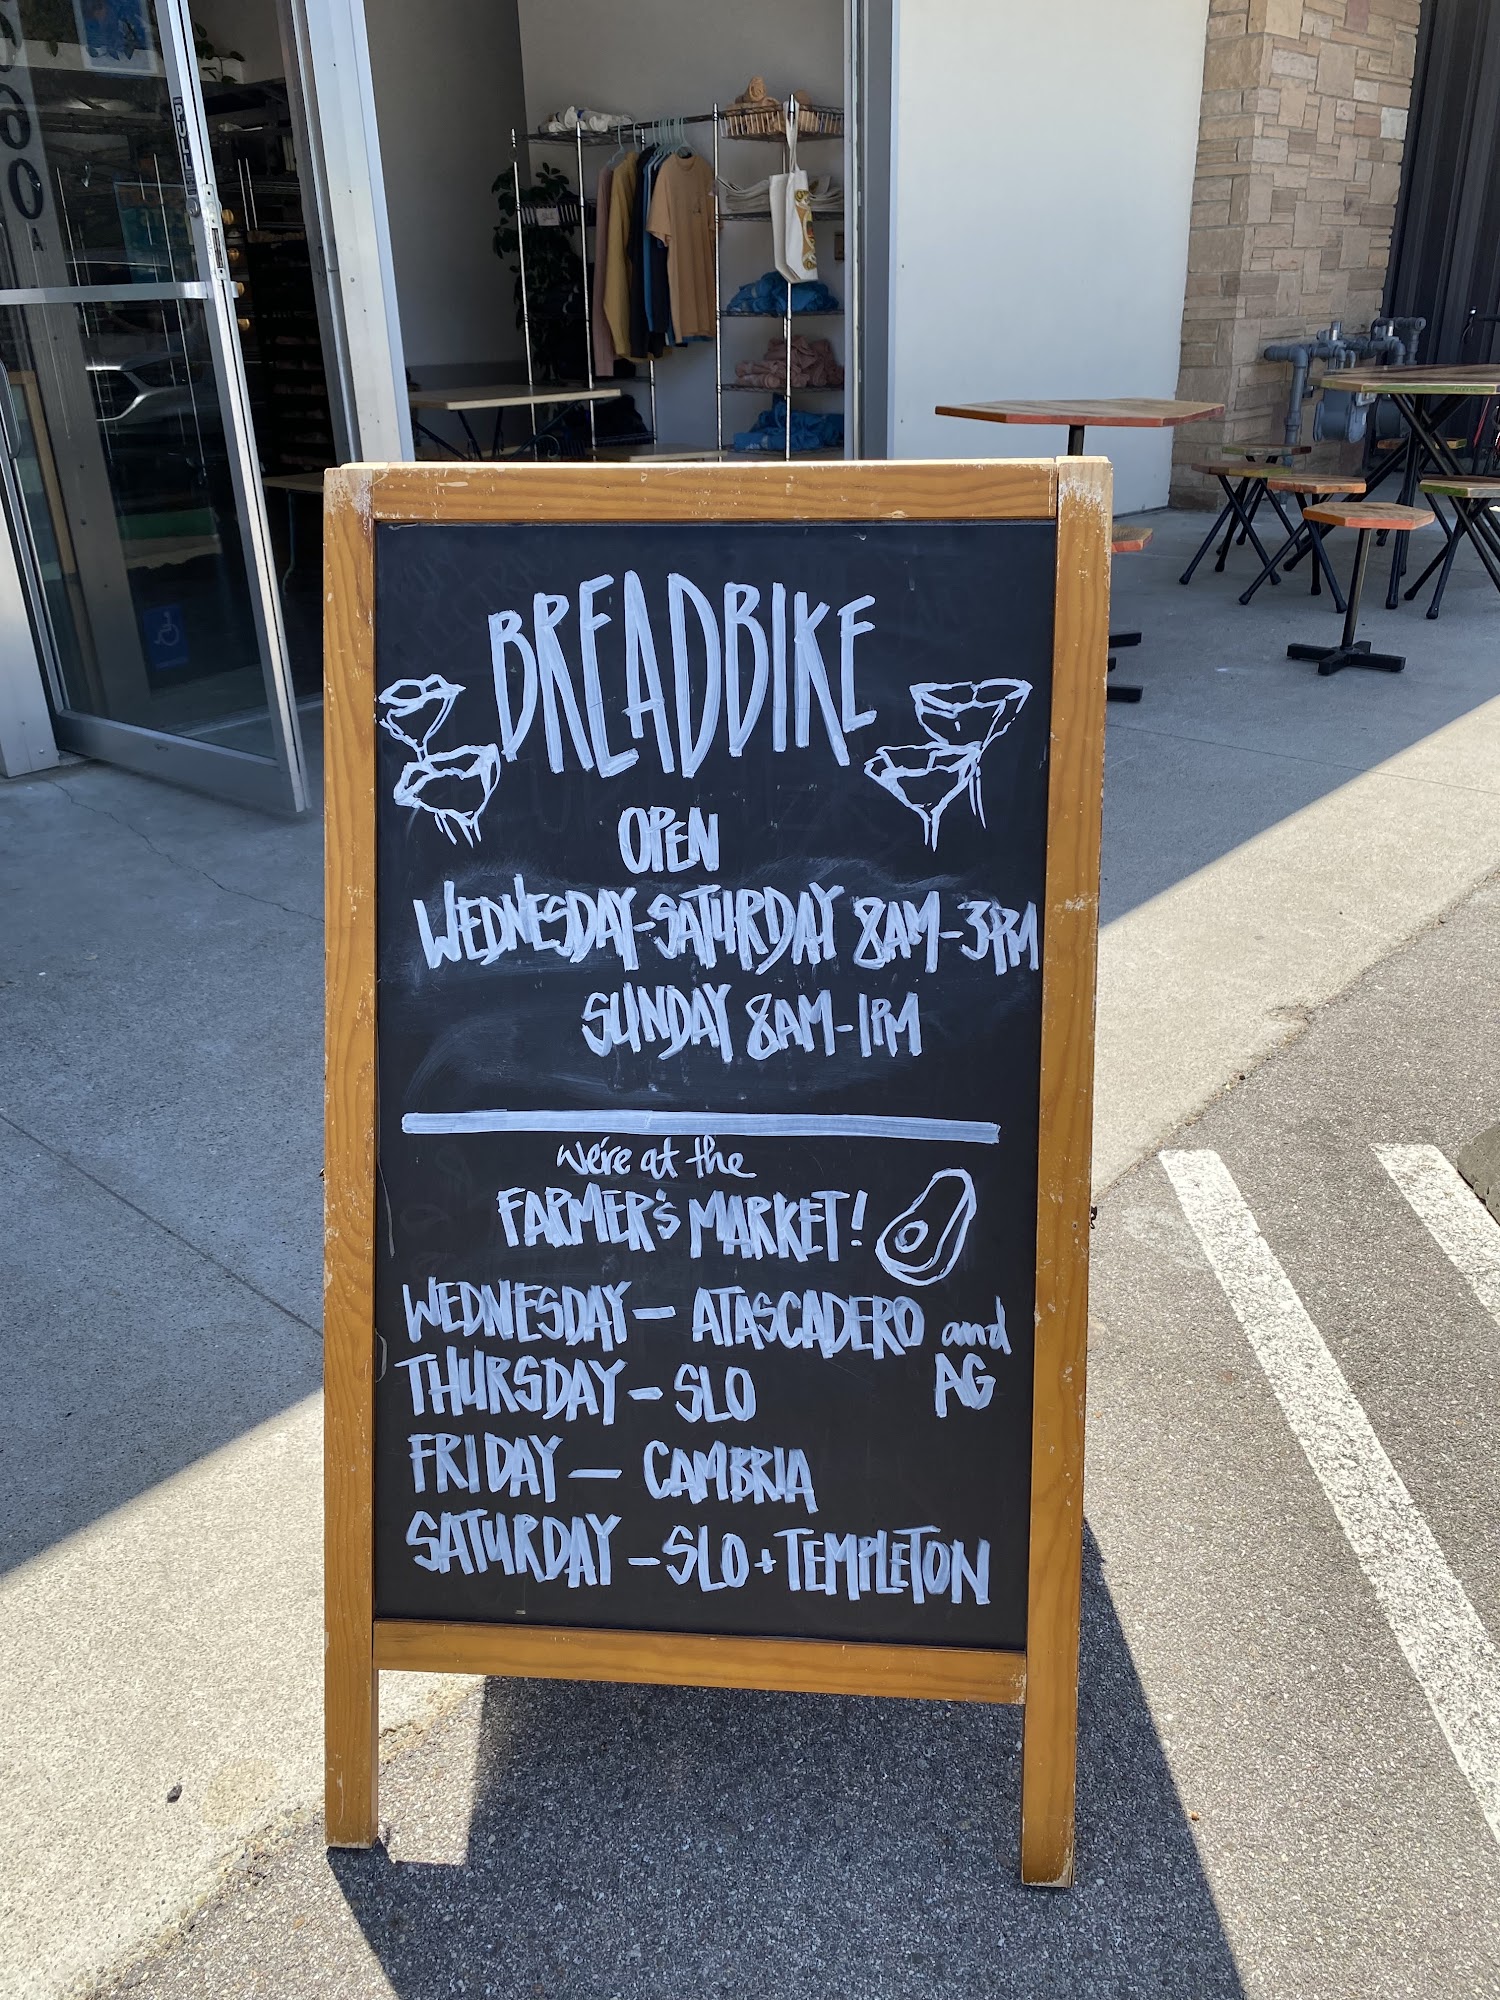 060
A
PULL
BREADBIKE
OPEN
WEDNESDAY-SATURDAY 8AM-3PM
SUNDAY 8AM-1PM
We're at the
FARMER'S MARKET!
WEDNESDAY - ATASCADERO and
AG
THURSDAY - SLO
FRIDAY - CAMBRIA
SATURDAY - SLO + TEMPLETON